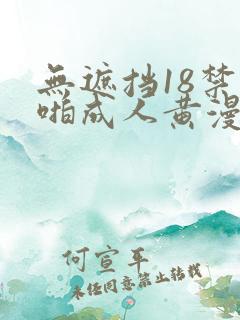 無遮挡18禁
啪成人黄漫
何宣平
未经同意禁止转载